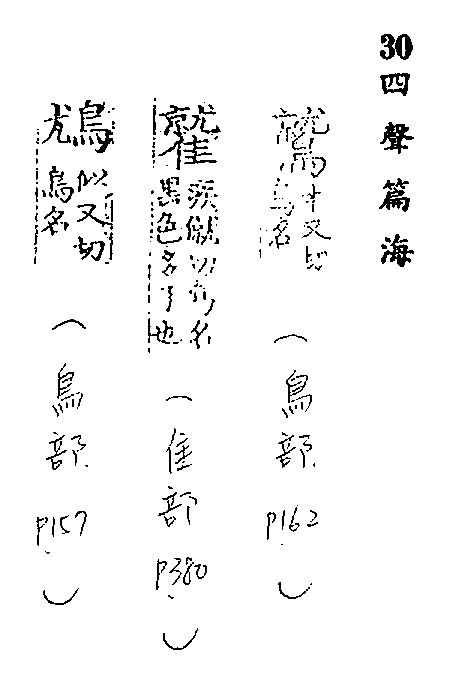 30四聲篇海
鷲 才又切鳥名
(鳥部 P162)
疾僦切鳥名黑色多子也
(隹部 P380)
似又切鳥名
(鳥部 P157)